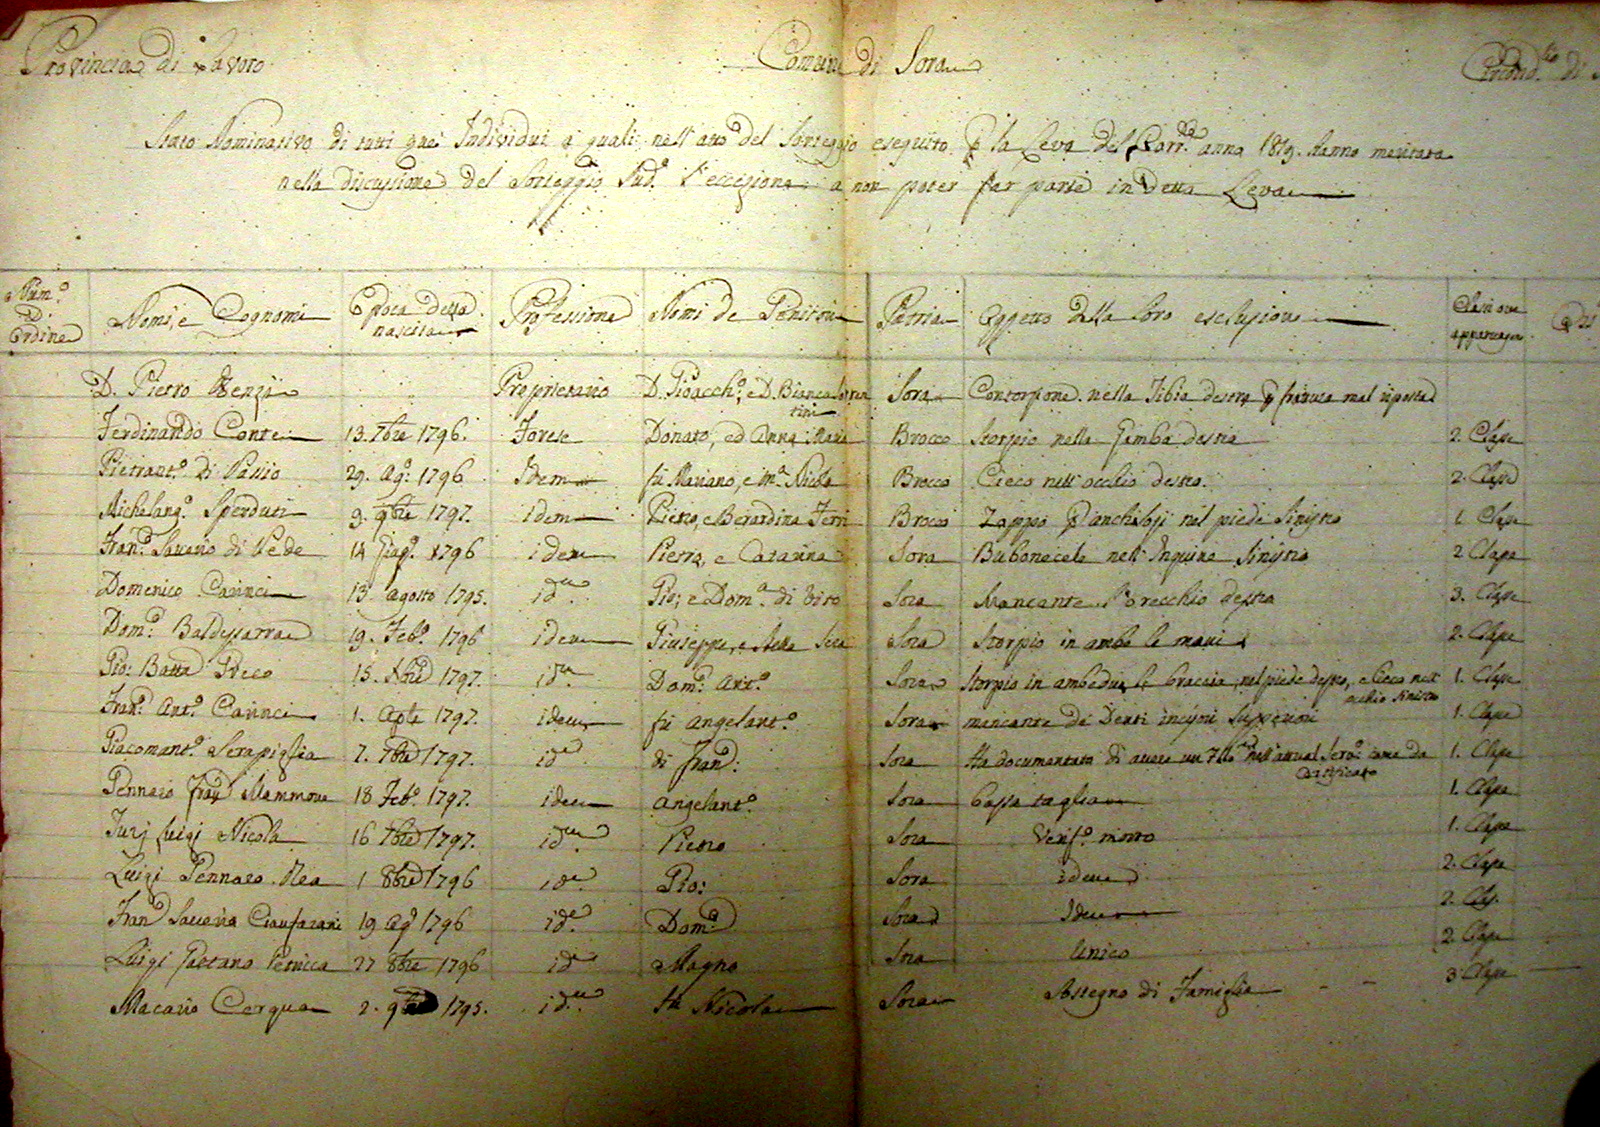 Provincia di Lavoro Comune di Sora Circond.rio di
Stato Nominativo di tutti quei Individui a quali nell'atto del Sorteggio eseguito p la Leva del Corr.e anno 1819. hanno meritata
nella discussione del Sorteggio Sud.o l'eccezione a non poter far parte in detta Leva
Num.o D Ordine Nomi, e Cognomi Epoca della nascita Professione Nomi de Genitori Patria Oggetto della loro esclusione Classi ove appartengon
D. Pietro Proprietario D. Gioacch.o, e D. Bianca Sora Contorzione nella Tibia destra p frattura mal riposta
Ferdinando Conte 13. 7bre 1796. Forese Donato, ed Anna Maria Brocco Storpio nella Gamba destra 2. Classe
Pietrant.o di Passio 29. Ag.o 1796 Idem fu Mariano, e M.a Nicola Brocco Cieco nell'occhio destro. 2. Classe
Michelang.o Sperduti 9. 9bre 1797. idem Pietro, e Berardina Ferri Brocco Zoppo p anchilosi nel piede sinistro 1. Classe
Fran.o Saverio di Vede 14 Giug.o 1796 idem Pietro, e Catarina Sora Bubonocele nell'Inguine sinistro 2 Classe
Domenico Carinci 13. agosto 1795. id.m Gio; e Dom.a di Vito Sora Mancante l'orecchio destro 3. Classe
Dom.o Baldassarra 19. Feb.o 1796 idem Giuseppe, e Stella Sora Storpio in ambe le mani 2. Classe
Gio: Batta Greco 15. Xbre 1797. id.m Dom.o Ant.o Sora Storpio in ambedue le braccia, nel piede destro, e Cieco nell' occhio sinistro 1. Classe
Fran.o Ant.o Carinci 1. Aple 1797. idem fu Angelant.o Sora mancante de Denti incisivi superiori 1. Classe
Giacomant.o Serapiglia 7. 7bre 1797. id.e di Fran.o: Sora Ha documentato di avere un nell'attual Serv.o come da Certificato 1. Classe
Gennaro Fran.o Mammone 18 Feb.o 1797. idem Angelant.o Sora bassa taglia 1. Classe
Turj Luigi Nicola 16 7bre 1797. id.m Pietro Sora morto 1. Classe
Luigi Gennaro Rea 1 8bre 1796 id.e Gio: Sora idem 2. Classe
Fran.o Saverio Cianfarani 19 Ag.o 1796 id.e Dom.o Sora Idem 2. Clas.
Luigi Gaetano Petricca 27 8bre 1796 id.e Magno Sora Unico 2. Classe
Macario Cerqua 2. 9bre 1795. id.m fu Nicola Sora Sostegno di Famiglia 3. Classe